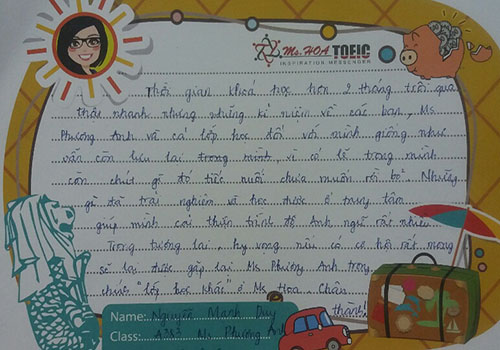 Ms. HOA TOEIC
INSPIRATION MESSENGER
Thời gian khoá học hơn 2 tháng trôi qua
thật nhanh nhưng những kỉ niệm về các bạn, Ms
Phương Anh và cả lớp học đối với mình giống như
vẫn còn lưu lại trong mình vì có lẽ trong mình
còn chút gì đó tiếc nuối chưa muốn rời bỏ. Những
gì đã trải nghiệm và học được ở trung tâm
giúp mình cải thiện trình độ Anh ngữ rất nhiều
Trong tương lai, hy vọng nếu có cơ hội rất mong
sẽ lại được gặp lại Ms Phương Anh trong
"lớp học khác" ở Ms Hoa. Chân
thành!
Name: Nguyễn Mạnh Duy
Class: Ms Phương Anh